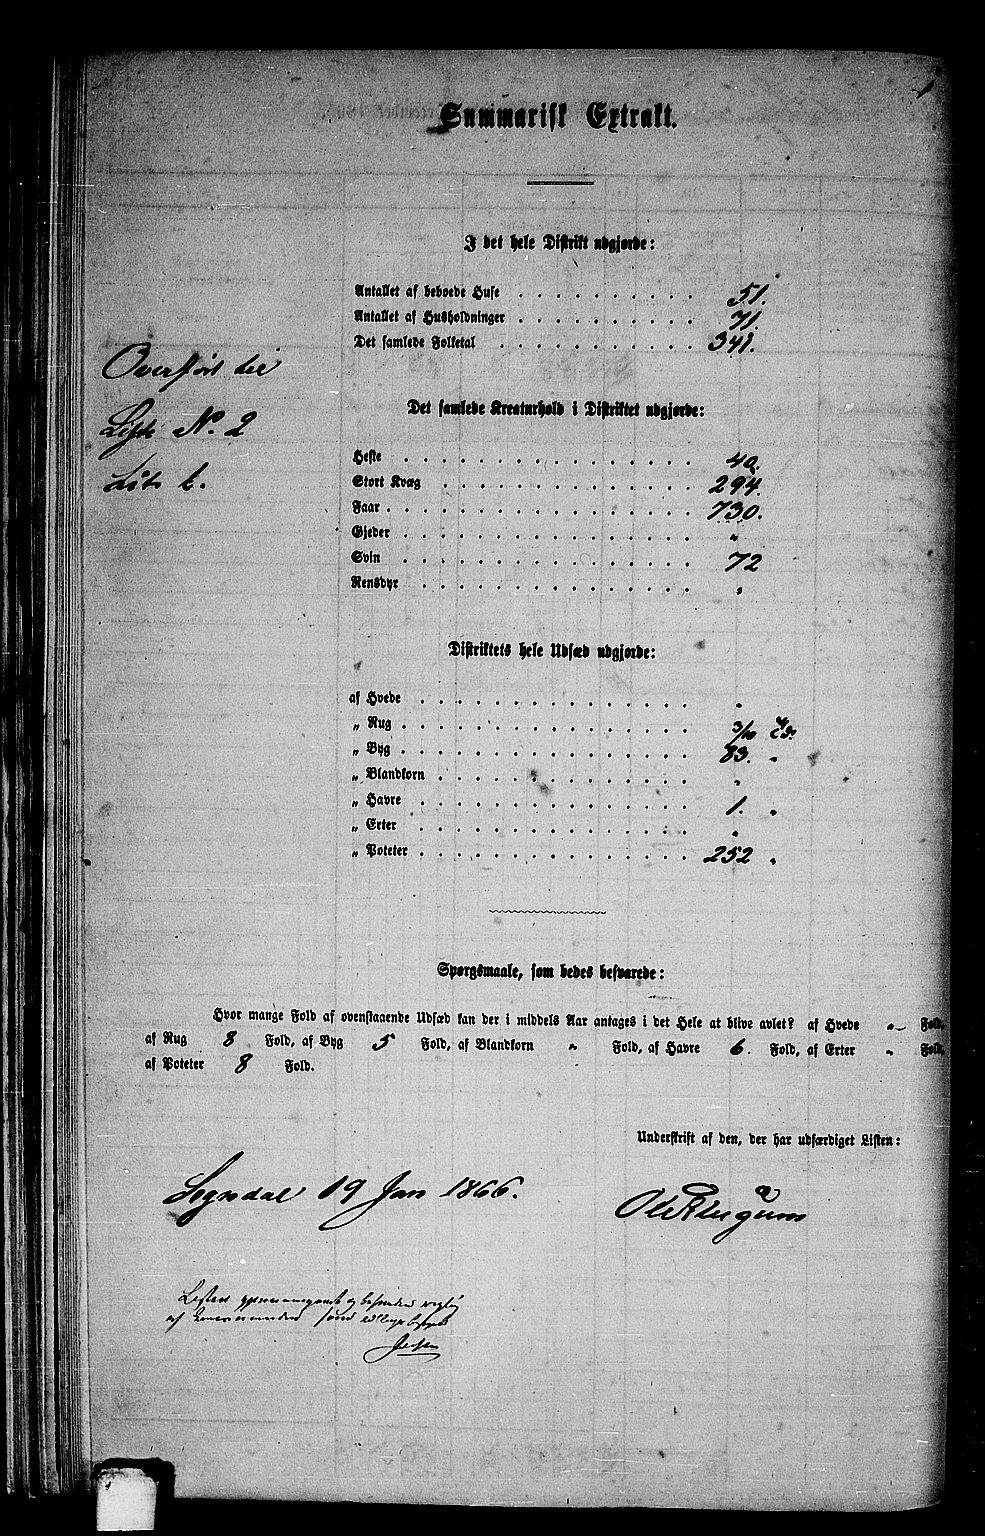 Summarisk Extrakt.
I det hele Distrikt udgjorde:
Antallet af beboede Huse . . . . . . . . . . 51.
Antallet af Husholdninger . . . . . . . . . . 71.
Det samlede Folketal . . . . . . . . . . . 341.
Overført til
Liste No. 2
Lit. b.
Det samlede Kreaturhold i Distriktet udgjorde:
Heste . . . . . . . . . . . . . . . . 40.
Stort Kvæg . . . . . . . . . . . . . . 294.
Faar . . . . . . . . . . . . . . . . . 730.
Gjeder . . . . . . . . . . . . . . . . "
Svin . . . . . . . . . . . . . . . . 72
Rensdyr . . . . . . . . . . . . . . . "
Distriktets hele Udsæd udgjorde:
af Hvede . . . . . . . . . . . . . . . "
„ Rug . . . . . . . . . . . . . . . . 3/10 Td.
„ Byg . . . . . . . . . . . . . . . . 83. "
„ Blandkorn . . . . . . . . . . . . . . "
„ Havre . . . . . . . . . . . . . . . 1. "
„ Erter . . . . . . . . . . . . . . . "
„ Poteter . . . . . . . . . . . . . . . 252 "
Spørgsmaale, som bedes besvarede:
Hvor mange Fold af ovenstaaende Udsæd kan der i middels Aar antages i det Hele at blive avlet? af Hvede " Fold,
af Rug 8 Fold, af Byg 5 Fold, af Blandkorn " Fold, af Havre 6. Fold, af Erter " Fold,
af Poteter 8 Fold.
Underskrift af den, der har udfærdiget Listen:
Sogndal 19 Jan 1866.
Listen gjennemgaaet og befunden rigtig
af Lensmanden